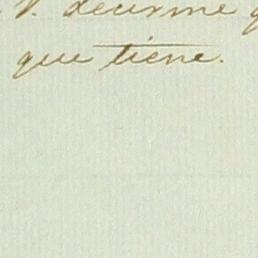 V. decirme q
que tiene.